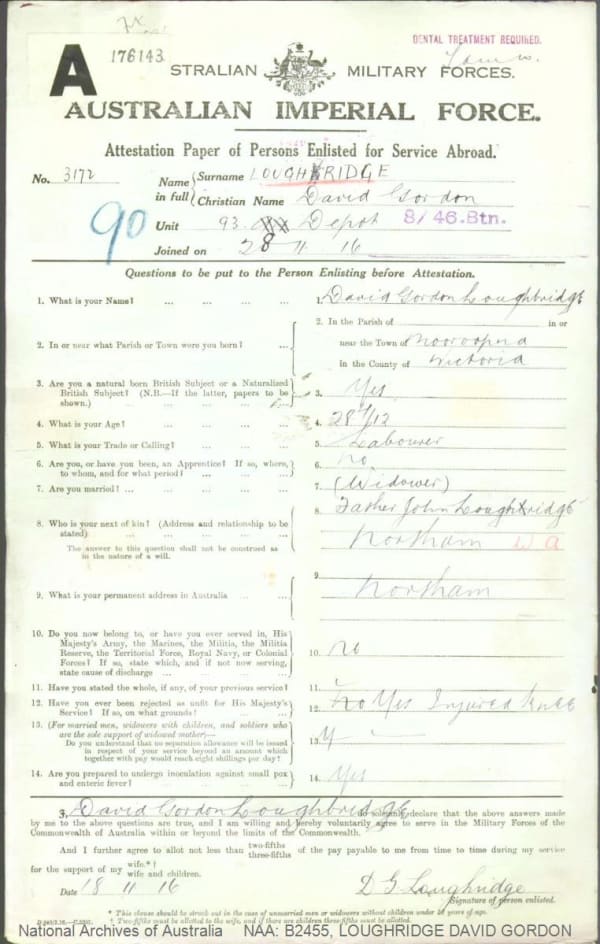 DENTAL TREATMENT REQUIRED.
A
176143
STRALIAN MILITARY FORCES.
AUSTRALIAN IMPERIAL FORCE.
Attestation Paper of Persons Enlisted for Service Abroad.
No. 3172
Name in full { Surname LOUGHRIDGE
Christian Name David Gordon
90
Unit 93. Depot 8/46.Btn.
Joined on 28 11 16
Questions to be put to the Person Enlisting before Attestation.
1. What is your Name? ... ... ... ... 1. David Gordon Loughbridge
2. In or near what Parish or Town were you born? ... 2. In the Parish of in or
near the Town of Mooroopna
in the County of Victoria
3. Are you a natural born British Subject or a Naturalized British Subject? (N.B.—If the latter, papers to be shown.) 3. Yes
4. What is your Age? ... ... ... ... 4. 28
5. What is your Trade or Calling? ... ... ... 5. Labourer
6. Are you, or have you been, an Apprentice? If so, where, to whom, and for what period? ... ... ... 6. No
7. Are you married? ... ... ... ... 7. (Widower)
8. Who is your next of kin? (Address and relationship to be stated) ... ... ... ... 8. Father John Loughridge
Northam W a
The answer to this question shall not be construed as in the nature of a will.
9. What is your permanent address in Australia ... ... 9. Northam
10. Do you now belong to, or have you ever served in, His Majesty's Army, the Marines, the Militia, the Militia Reserve, the Territorial Force, Royal Navy, or Colonial Forces? If so, state which, and if not now serving, state cause of discharge ... ... ... 10. No
11. Have you stated the whole, if any, of your previous service? 11.
12. Have you ever been rejected as unfit for His Majesty's Service? If so, on what grounds? ... ... 12. No Yes Injured Knee
13. (For married men, widowers with children, and soldiers who are the sole support of widowed mother)—
Do you understand that no separation allowance will be issued in respect of your service beyond an amount which together with pay would reach eight shillings per day? 13. Y
14. Are you prepared to undergo inoculation against small pox and enteric fever? ... ... ... 14. Yes
I, David Gordon Loughbridge do solemnly declare that the above answers made
by me to the above questions are true, and I am willing and hereby voluntarily agree to serve in the Military Forces of the
Commonwealth of Australia within or beyond the limits of the Commonwealth.
And I further agree to allot not less than two-fifths three-fifths of the pay payable to me from time to time during my service
for the support of my wife.*† wife and children.
Date 18 11 16
D G Loughridge
Signature of person enlisted.
* This clause should be struck out in the case of unmarried men or widowers without children under 18 years of age.
† Two-fifths must be allotted to the wife, and if there are children three-fifths must be allotted.
National Archives of Australia NAA: B2455, LOUGHRIDGE DAVID GORDON